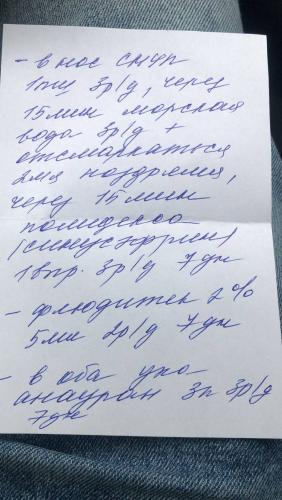 - в нос СМФП
1пш 3р/д, через
15мин морская
вода 3р/д +
отсмаркаться
2мя ноздрями,
через 15мин
полидекса
(синусэфрин)
1впр. 3р/д 7дн
- флюдитек 2%
5мл 2р/д 7дн
- в оба уха
анауран 3к 3р/д
7дн